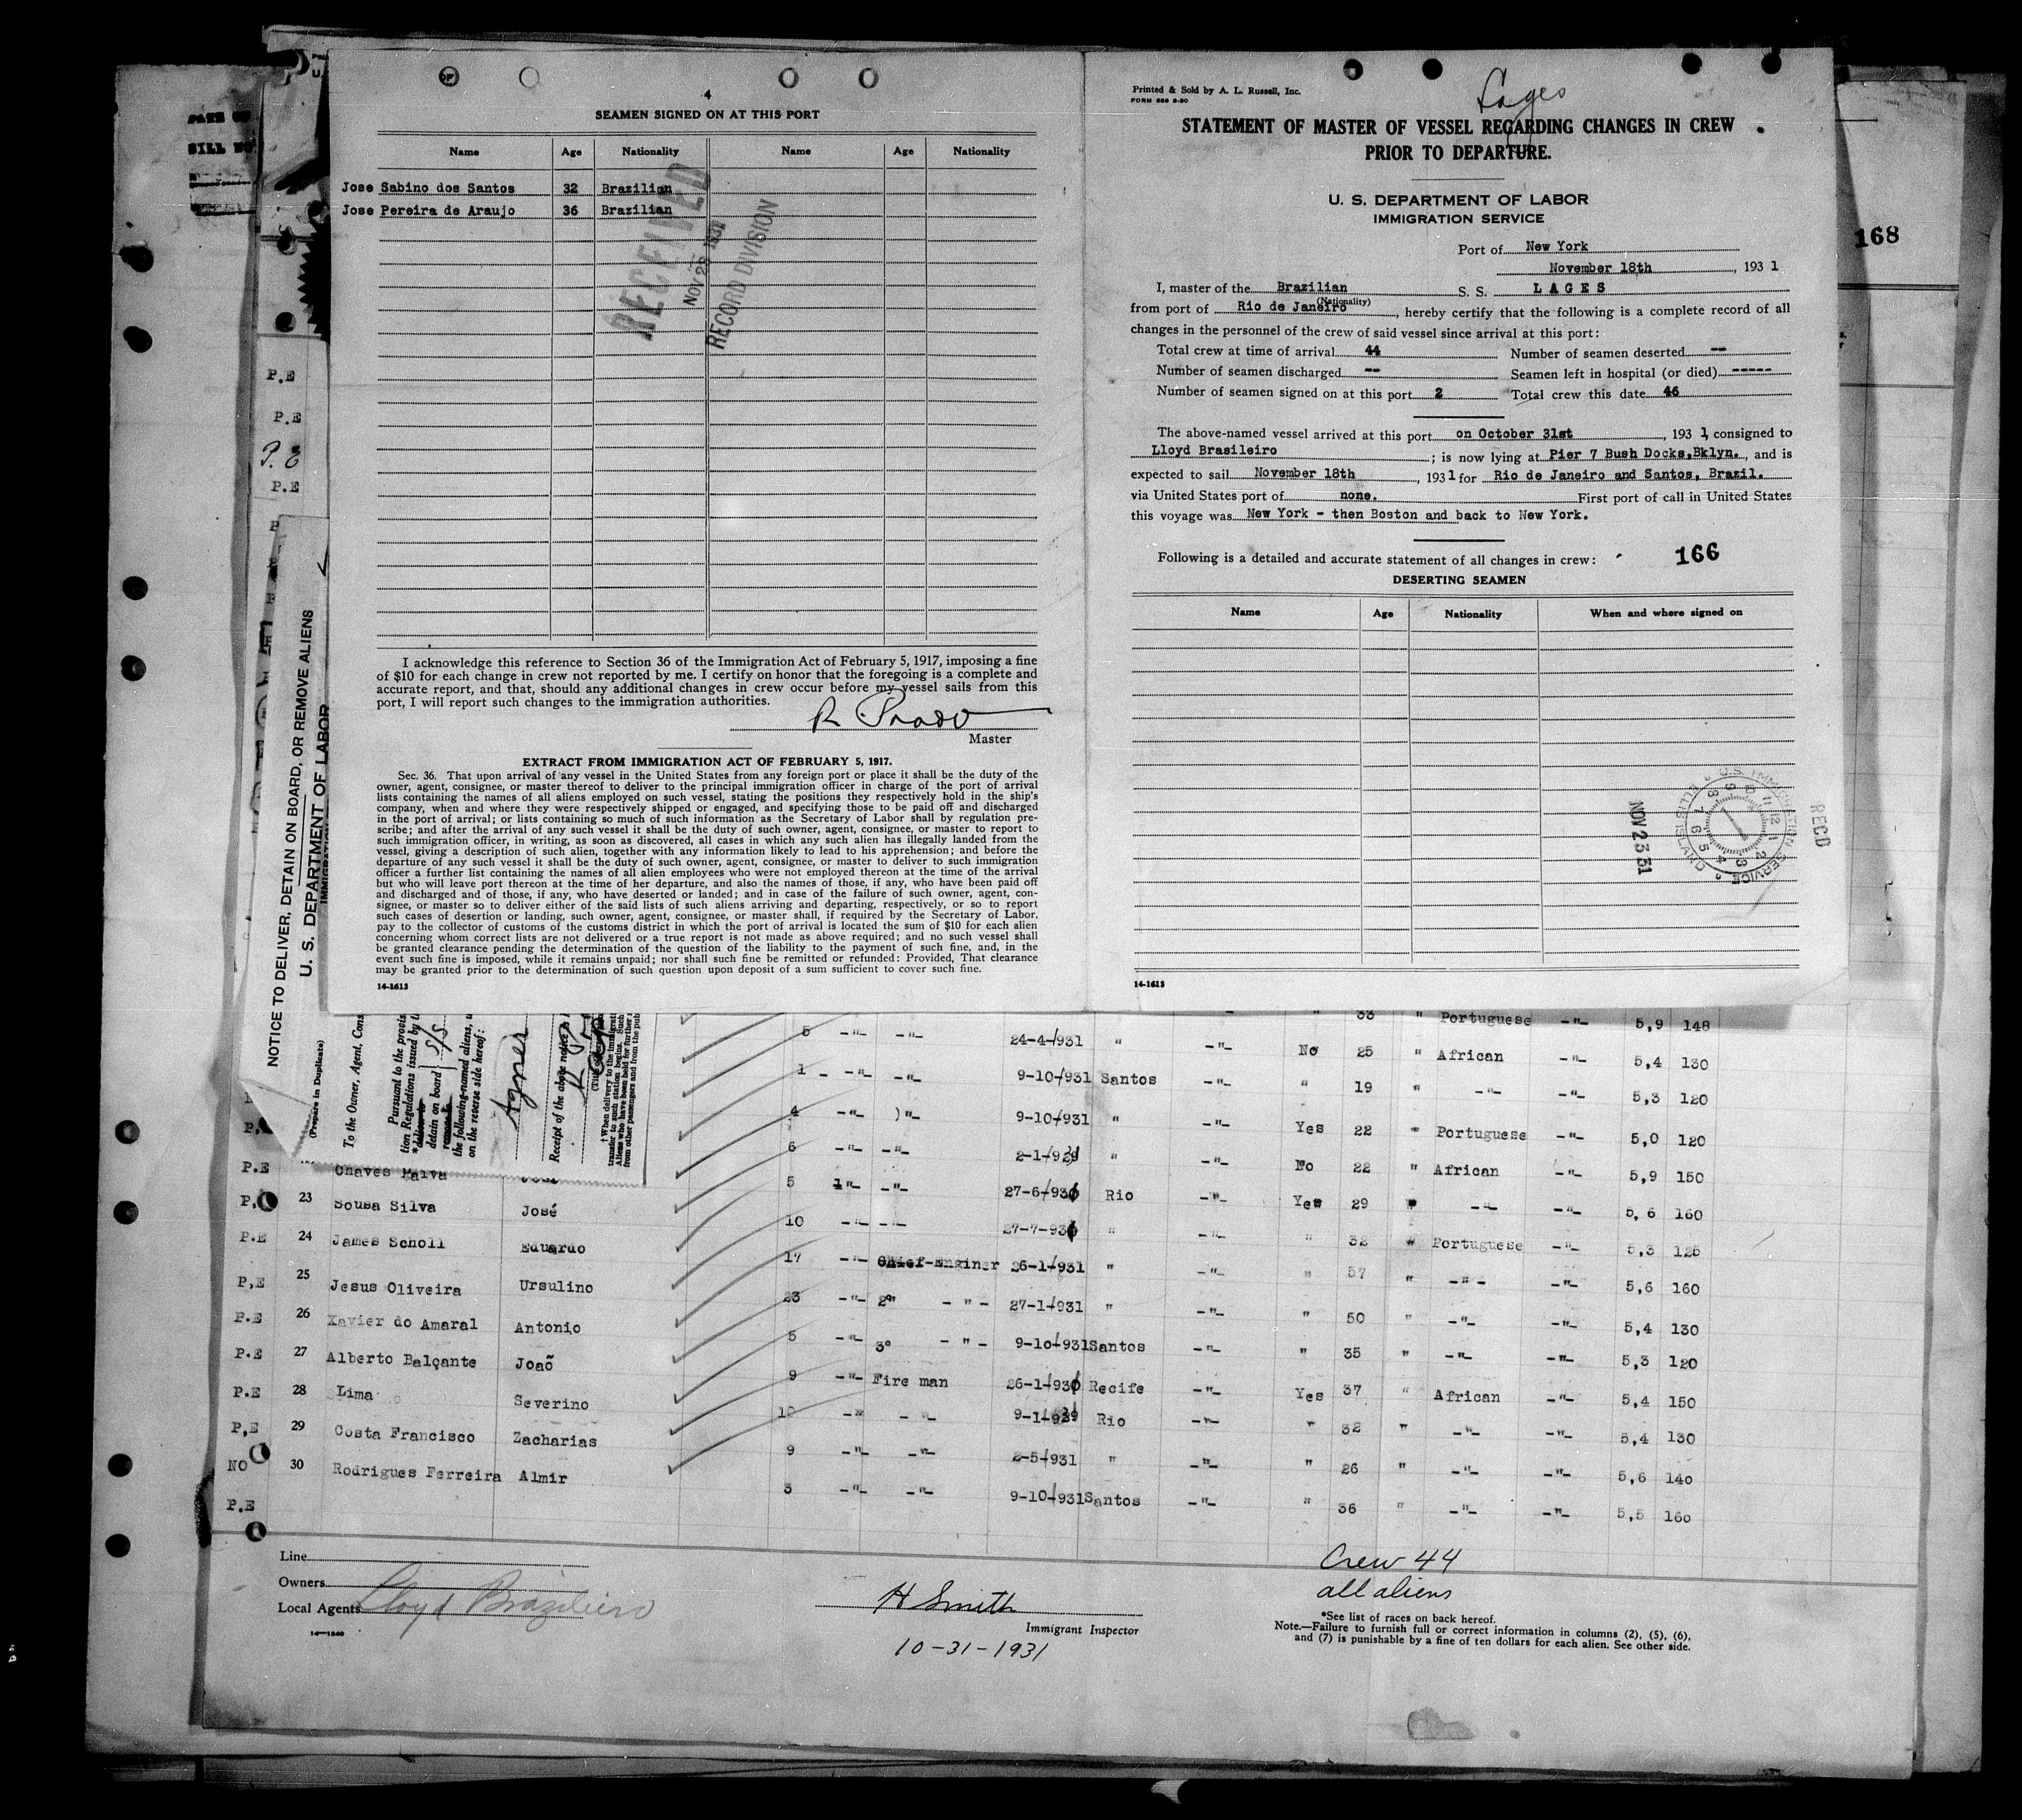 4
SEAMEN SIGNED ON AT THIS PORT
Name Age Nationality Name Age Nationality
Jose Sabino dos Santos 32 Brazilian
Jose Pereira de Araujo 36 Brazilian
RECEIVED
NOV 28 1931
RECORD DIVISION
I acknowledge this reference to Section 36 of the Immigration Act of February 5, 1917, imposing a fine
of $10 for each change in crew not reported by me. I certify on honor that the foregoing is a complete and
accurate report, and that, should any additional changes in crew occur before my vessel sails from this
port, I will report such changes to the immigration authorities.
R Prado
Master
EXTRACT FROM IMMIGRATION ACT OF FEBRUARY 5, 1917.
Sec. 36. That upon arrival of any vessel in the United States from any foreign port or place it shall be the duty of the
owner, agent, consignee, or master thereof to deliver to the principal immigration officer in charge of the port of arrival
lists containing the names of all aliens employed on such vessel, stating the positions they respectively hold in the ship's
company, when and where they were respectively shipped or engaged, and specifying those to be paid off and discharged
in the port of arrival; or lists containing so much of such information as the Secretary of Labor shall by regulation pre-
scribe; and after the arrival of any such vessel it shall be the duty of such owner, agent, consignee, or master to report to
such immigration officer, in writing, as soon as discovered, all cases in which any such alien has illegally landed from the
vessel, giving a description of such alien, together with any information likely to lead to his apprehension; and before the
departure of any such vessel it shall be the duty of such owner, agent, consignee, or master to deliver to such immigration
officer a further list containing the names of all alien employees who were not employed thereon at the time of the arrival
but who will leave port thereon at the time of her departure, and also the names of those, if any, who have been paid off
and discharged and of those, if any, who have deserted or landed; and in case of the failure of such owner, agent, con-
signee, or master so to deliver either of the said lists of such aliens arriving and departing, respectively, or so to report
such cases of desertion or landing, such owner, agent, consignee, or master shall, if required by the Secretary of Labor,
pay to the collector of customs of the customs district in which the port of arrival is located the sum of $10 for each alien
concerning whom correct lists are not delivered or a true report is not made as above required; and no such vessel shall
be granted clearance pending the determination of the question of the liability to the payment of such fine, and, in the
event such fine is imposed, while it remains unpaid; nor shall such fine be remitted or refunded: Provided, That clearance
may be granted prior to the determination of such question upon deposit of a sum sufficient to cover such fine.
14-1613
Printed & Sold by A. L. Russell, Inc.
FORM 689 6-30
Lages
STATEMENT OF MASTER OF VESSEL REGARDING CHANGES IN CREW
PRIOR TO DEPARTURE.
U. S. DEPARTMENT OF LABOR
IMMIGRATION SERVICE
Port of New York
November 18th, 1931
I, master of the Brazilian S. S. LAGES
(Nationality)
from port of Rio de Janeiro, hereby certify that the following is a complete record of all
changes in the personnel of the crew of said vessel since arrival at this port:
Total crew at time of arrival 44 Number of seamen deserted --
Number of seamen discharged -- Seamen left in hospital (or died) -----
Number of seamen signed on at this port 2 Total crew this date 46
The above-named vessel arrived at this port on October 31st, 1931, consigned to
Lloyd Brasileiro; is now lying at Pier 7 Bush Docks,Bklyn., and is
expected to sail November 18th, 1931 for Rio de Janeiro and Santos, Brazil.
via United States port of none. First port of call in United States
this voyage was New York - then Boston and back to New York.
Following is a detailed and accurate statement of all changes in crew: 166
DESERTING SEAMEN
Name Age Nationality When and where signed on
U.S. IMMIGRATION SERVICE ELLIS ISLAND
RECD
NOV 23 31
14-1613
168
P.E
P.E
P.E
P.E
NOTICE TO DELIVER, DETAIN ON BOARD, OR REMOVE ALIENS
U. S. DEPARTMENT OF LABOR
(Prepare in Duplicate)
To the Owner, Agent, Cons
Pursuant to the provis
tion Regulations issued by t
detain on board S/S
the following-named aliens, u
on the reverse side hereof:
Receipt of the above notice
33 " Portuguese -"- 5,9 148
5 -"- -"- 24-4-/931 " -"- No 25 " African -"- 5,4 130
1 - -"- -"- 9-10-/931 Santos -"- " 19 " -"- -"- 5,3 120
4 -"- -"- 9-10-/931 " -"- Yes 22 " Portuguese -"- 5,0 120
6 -"- -"- 2-1-/931 " -"- No 22 " African -"- 5,9 150
P.E Chaves Paiva José 5 -"- -"- 27-6-/930 Rio -"- Yes 29 " -"- -"- 5,6 160
23 Sousa Silva José 10 -"- -"- 27-7-/930 " -"- " 32 " Portuguese -"- 5,3 125
P.E 24 James Scholl Eduardo 17 -"- Chief-Enginer 26-1-/931 " -"- " 57 " -"- -"- 5,6 160
P,E 25 Jesus Oliveira Ursulino 23 -"- 2º -"- 27-1-/931 " -"- " 50 " -"- -"- 5,4 130
P.E 26 Xavier do Amaral Antonio 5 -"- 3º -"- 9-10-/931 Santos -"- " 35 " -"- -"- 5,3 120
P.E 27 Alberto Balçante Joaõ 9 -"- Fire man 26-1-/930 Recife -"- Yes 37 " African -"- 5,4 150
P.E 28 Lima Severino 10 -"- -"- Rio -"- " 32 " -"- -"- 5,4 130
P,E 29 Costa Francisco Zacharias 9 -"- -"- 2-5-/931 " -"- " 26 " -"- -"- 5,6 140
NO 30 Rodrigues Ferreira Almir 3 -"- -"- 9-10-/931 Santos -"- " 36 " -"- -"- 5,5 160
P.E
Line
Owners
Local Agents Lloyd Braziliero
14-1240
H Smith
Immigrant Inspector
10-31-1931
Crew 44
all aliens
*See list of races on back hereof.
Note.—Failure to furnish full or correct information in columns (2), (5), (6),
and (7) is punishable by a fine of ten dollars for each alien. See other side.